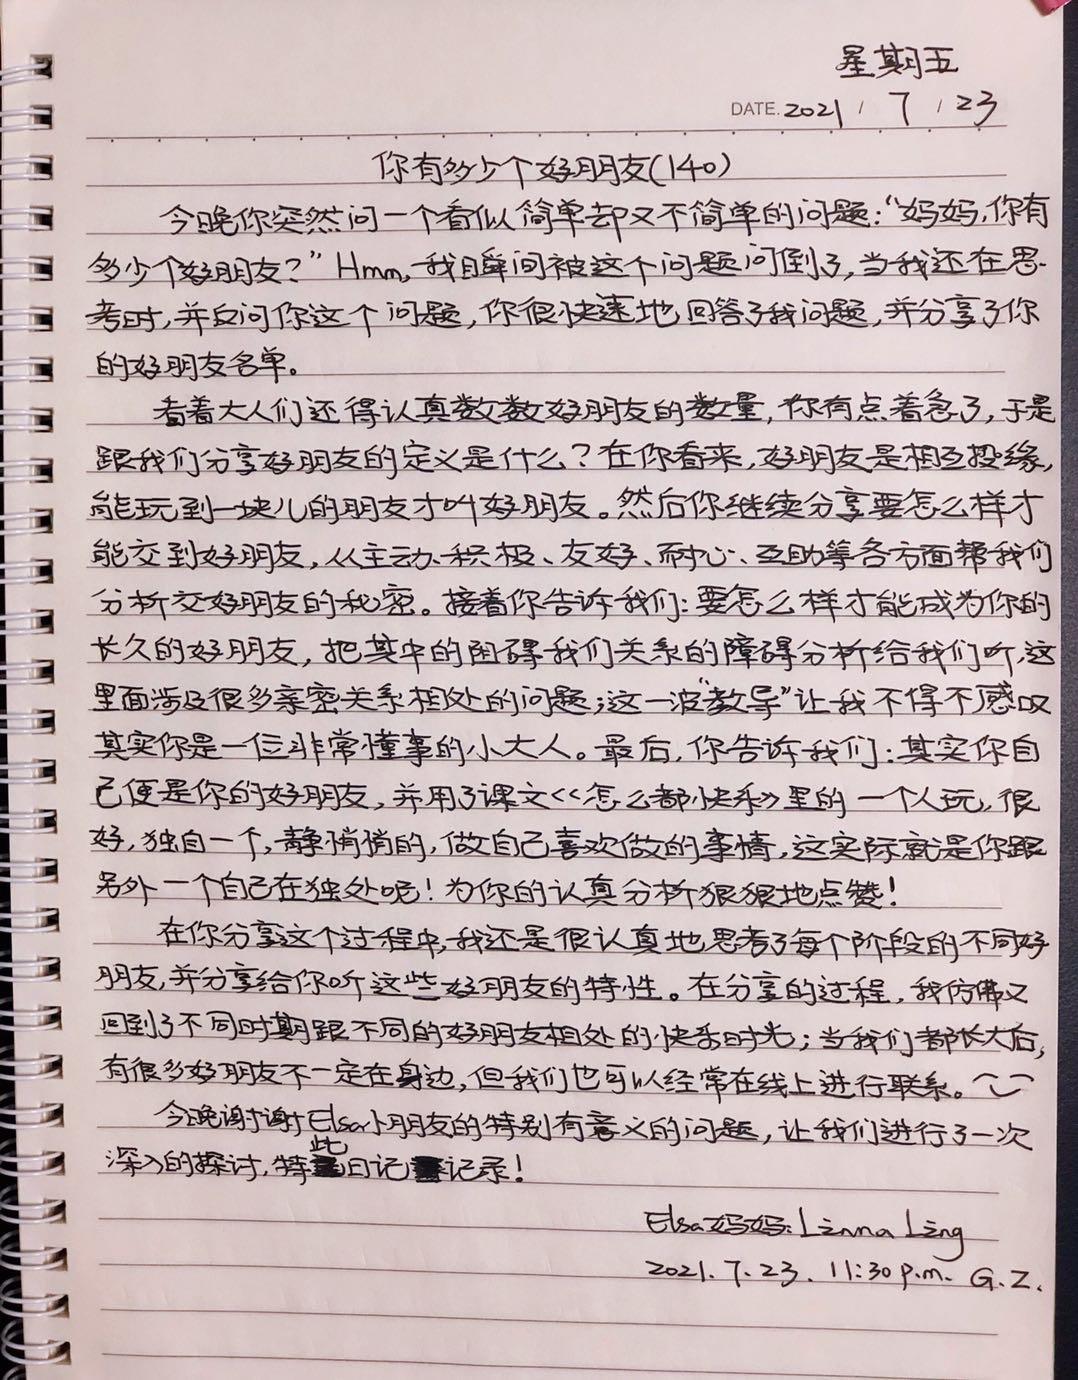 星期五
DATE. 2021 / 7 / 23
你有多少个好朋友(140)
今晚你突然问一个看似简单却又不简单的问题:“妈妈,你有
多少个好朋友?”Hmm,我瞬间被这个问题问倒了,当我还在思
考时,并反问你这个问题,你很快速地回答了我问题,并分享了你
的好朋友名单。
看着大人们还得认真数数好朋友的数量,你有点着急了,于是
跟我们分享好朋友的定义是什么?在你看来,好朋友是相互投缘,
能玩到一块儿的朋友才叫好朋友。然后你继续分享要怎么样才
能交到好朋友,从主动、积极、友好、耐心、互助等各方面帮我们
分析交好朋友的秘密。接着你告诉我们:要怎么样才能成为你的
长久的好朋友,把其中的阻碍我们关系的障碍分析给我们听,这
里面涉及很多亲密关系相处的问题;这一波“教导”让我不得不感叹
其实你是一位非常懂事的小大人。最后,你告诉我们:其实你自
己便是你的好朋友,并用了课文<<怎么都快乐>>里的一个人玩,很
好,独自一个,静悄悄的,做自己喜欢做的事情,这实际就是你跟
另外一个自己在独处呢!为你的认真分析狠狠地点赞!
在你分享这个过程中,我还是很认真地思考了每个阶段的不同好
朋友,并分享给你听这些好朋友的特性。在分享的过程,我仿佛又
回到了不同时期跟不同的好朋友相处的快乐时光;当我们都长大后,
有很多好朋友不一定在身边,但我们也可以经常在线上进行联系。
今晚谢谢Elsa小朋友的特别有意义的问题,让我们进行了一次
深入的探讨,特此日记记录!
Elsa妈妈:Linna Ling
2021.7.23. 11:30 p.m. G.Z.